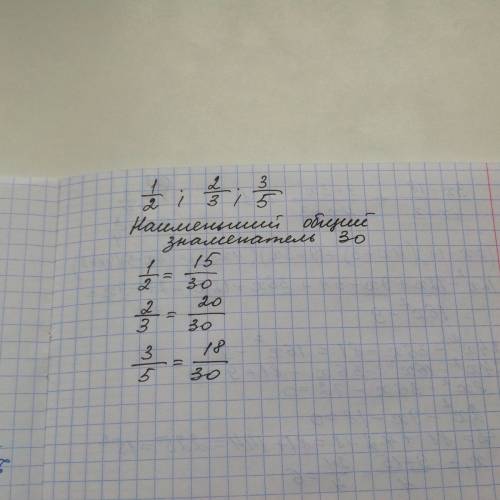 1/2 ; 2/3 ; 3/5
Наименьший общий
знаменатель 30
1/2 = 15/30
2/3 = 20/30
3/5 = 18/30